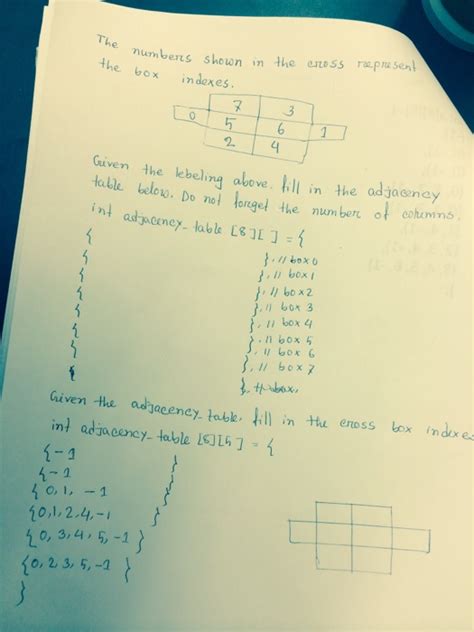 The numbers shown in the cross represent
the box indexes.
7 3
0 5 6 1
2 4
Given the lebeling above. fill in the adjacency
table below. Do not forget the number of columns.
int adjacency_table [8][ ] = {
{ }, // box 0
{ }, // box 1
{ }, // box 2
{ }, // box 3
{ }, // box 4
{ }, // box 5
{ }, // box 6
{ }, // box 7
{
Given the adjacency_table, fill in the cross box indexes
int adjacency_table [8][5] = {
{-1 }
{-1 }
{0, 1, -1 }
{0,1,2,4,-1 }
{0, 3, 4, 5, -1 }
{0, 2 3, 5, -1 }
}